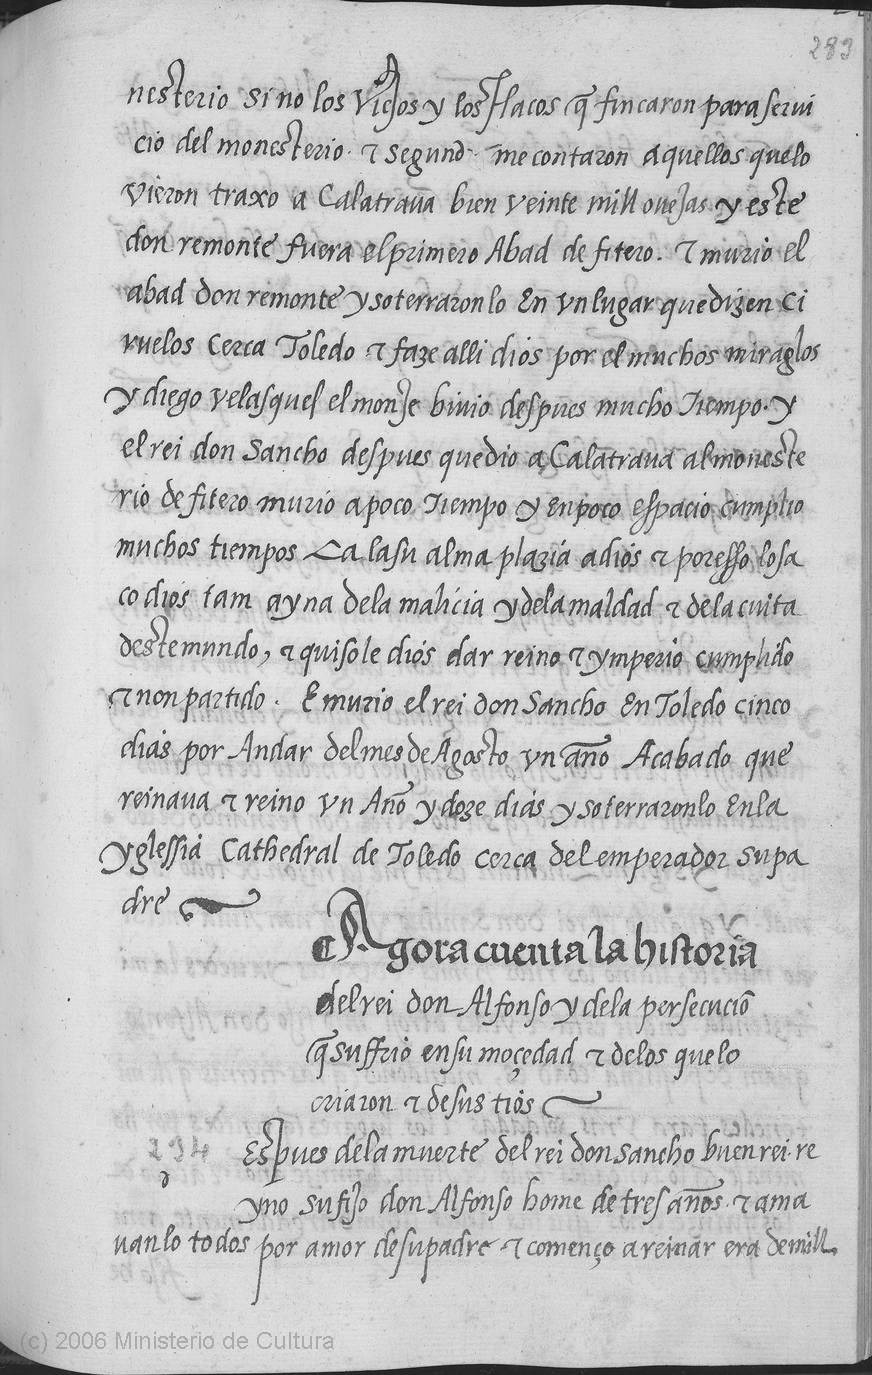 283
nesterio sino los Viejos y los flacos q̃ fincaron para servi
cio del monesterio · τ segund · me contaron aquellos quelo
vieron traxo a Calatrava bien veinte mill ovejas y este
don remonte fuera el primero Abad de fitero . τ murio el
abad don remonte y soterraronlo En vn lugar que dizen Ci
ruelos Cerca Toledo τ faze alli dios por el muchos miraglos
y diego velasquez el monje bivio despues mucho Tiempo . y
el rei don Sancho despues que dio a Calatrava al moneste
rio de fitero murio a poco Tiempo y en poco espacio cumplio
muchos tiempos Ca la su alma plazia a dios τ por esso lo sa
co dios tam ayna de la malicia y de la maldad τ de la cuita
deste mundo , τ quiso le dios dar reino τ ymperio cumplido
τ non partido . E murio el rei don Sancho En Toledo cinco
dias por Andar del mes de Agosto vn año Acabado que
reinava τ reino vn Año y doze dias y soterraronlo En la
yglessia Cathedral de Toledo cerca del emperador su pa
dre
Agora cuenta la historia
del rei don Alfonso y de la persecuciõ
q̃ suffrio en su moçedad τ de los que lo
criaron τ de sus tios
294
d Espues de la muerte del rei don Sancho buen rei . re
yno su fijo don Alfonso home de tres años . τ ama
vanlo todos por amor de su padre τ començo a reinar era de mill
(c) 2006 Ministerio de Cultura